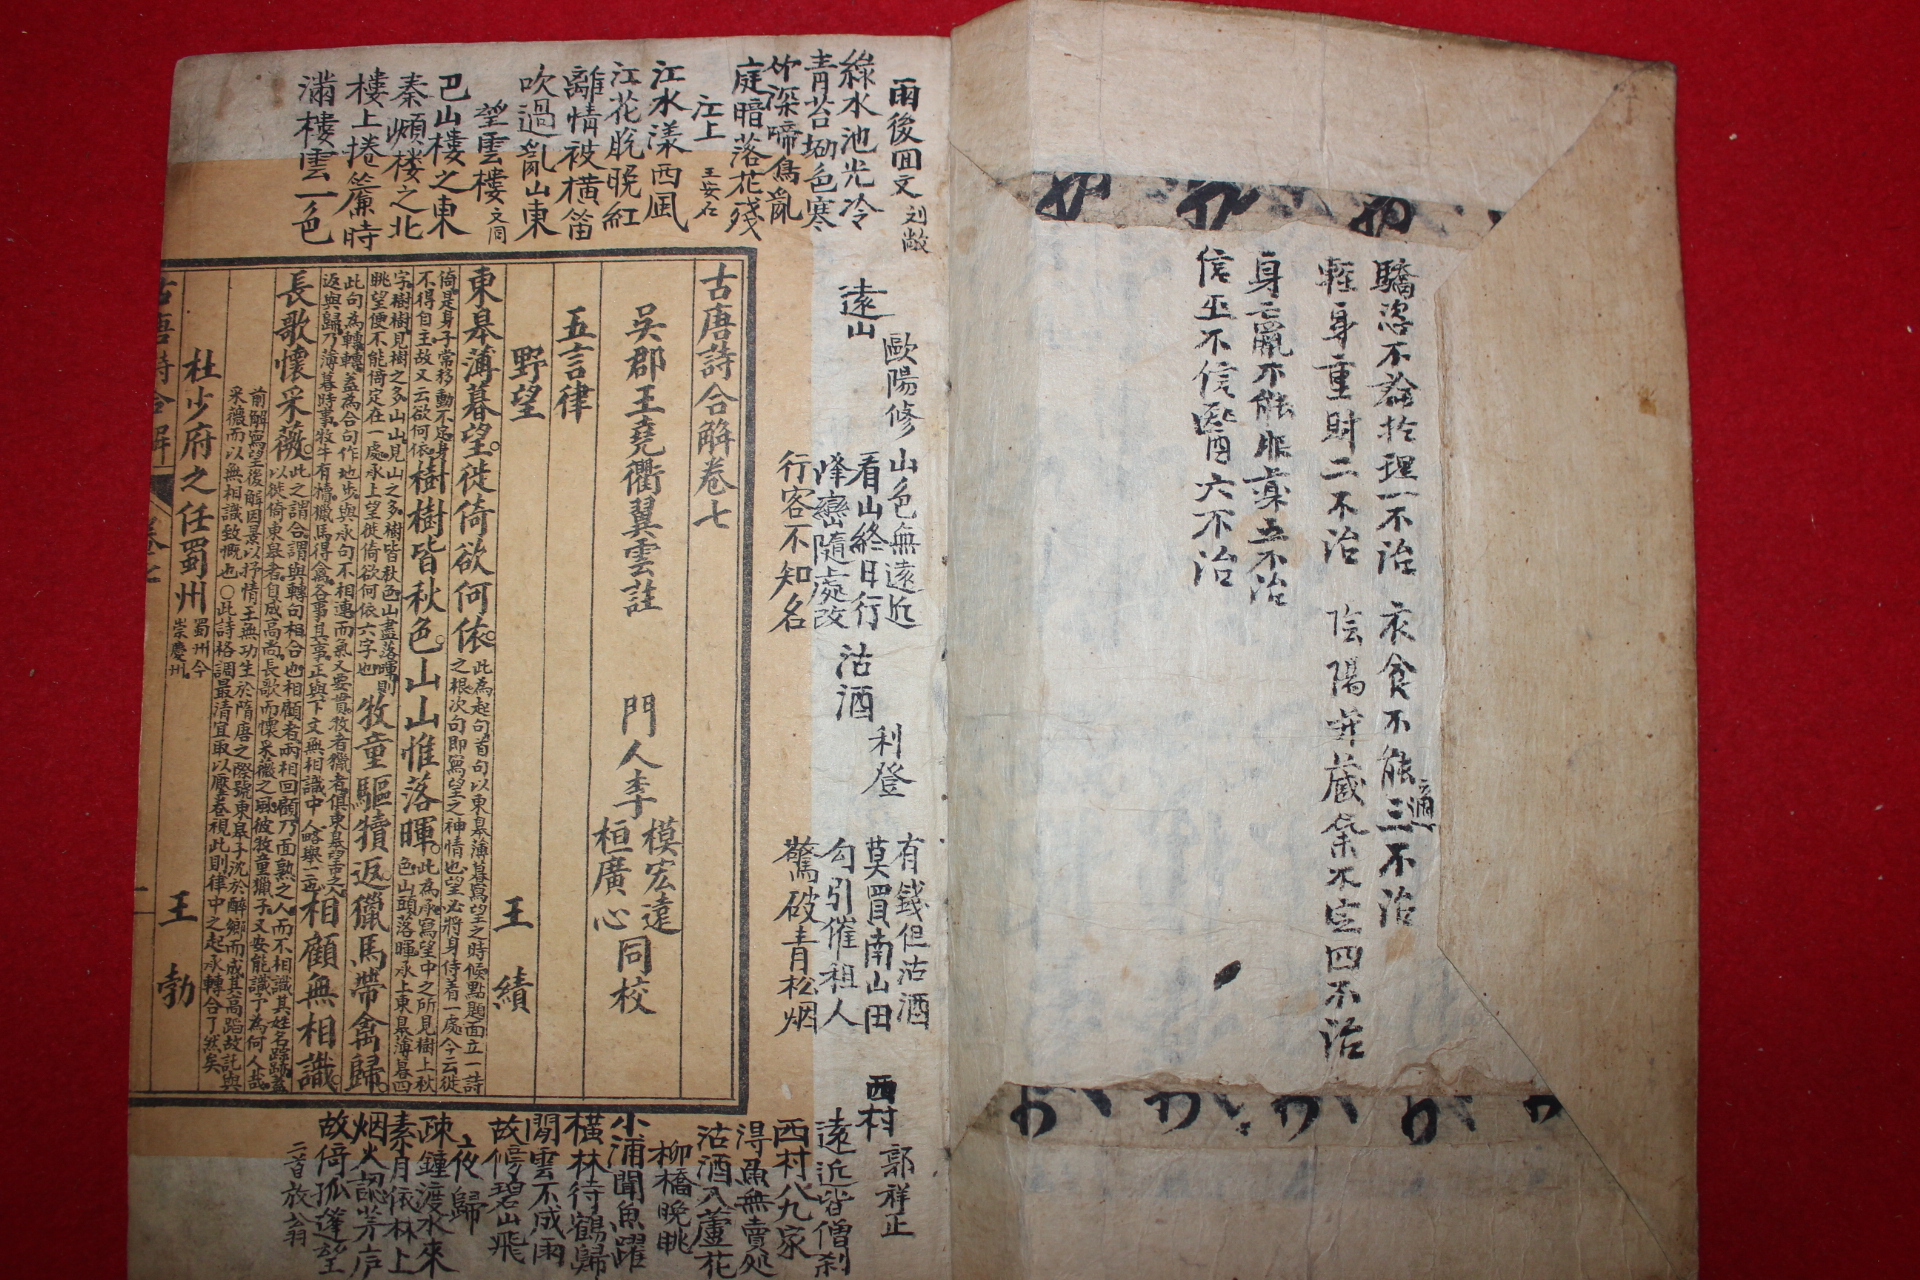 驕恣不論於理一不治
衣食不能適三不治
輕身重財二不治
陰陽幷藏氣不定四不治
身羸不能服藥五不治
信巫不信醫六不治
雨後回文 刘敞
綠水池光冷
青苔坳色寒
竹深啼鳥亂
庭暗落花殘
江上 王安石
江水漾西風
江花脫晩紅
離情被橫笛
吹過亂山東
望雲樓 文同
巴山樓之東
秦嶺樓之北
樓上捲簾時
滿樓雲一色
遠山
歐陽修
山色無遠近
看山終日行
峰巒隨處改
行客不知名
沽酒
利登
有錢但沽酒
莫買南山田
勾引催租人
驚破靑松烟
西村
郭祥正
遠近皆僧刹
西村八九家
得魚無賣処
沽酒入蘆花
柳橋晩眺
小浦聞魚躍
橫林待鶴歸
閒雲不成雨
故傍碧山飛
夜歸
疎鐘渡水來
素月依林上
烟火認茅庐
故倚孤蓬望
二首放翁
古唐詩合解卷七
吳郡王堯衢翼雲註
門人李模宏遠
桓廣心同校
五言律
野望
王績
東皋薄暮望徙倚欲何依
此為起句首句以東皋薄暮寫望之時候點題面立一詩
之根次句即寫望之神情也望必將身倚着一處今云徙
倚是身子常移動不定身
不得自主故又云欲何依
樹樹皆秋色山山惟落暉
此為承寫望中之所見樹上秋
色山頭落暉承上東皋薄暮四
字樹樹見樹之多山山見山之多樹皆秋色山盡落暉則
眺望便不能倚定在一處承上望徙倚欲何依六字也
牧童驅犢返獵馬帶禽歸
此句為轉轉蓋為合句作地步與承句不相連而氣又要貫牧者獵者俱東皋望之
返與歸乃薄暮時事牧牛有犢獵馬得禽各事其事正與下文無相識中人略舉一二
相顧無相識
長歌懷采薇
此之謂合謂與轉句相合也相顧者兩相回顧乃面熟之人而不相識其姓名踪跡蓋
以徙倚東皋者自成高尚長歌而懷采薇之風彼牧童獵子又安能識予為何人哉
前解寫望後解因景以抒情王無功生於隋唐之際號東皋子沈於醉鄉而成其高蹈故託與
采薇而以無相識致慨也○此詩格調最清宜取以壓卷視此則律中之起承轉合了然矣
杜少府之任蜀州
蜀州今
崇慶州
王勃
古唐詩合解
卷七
一